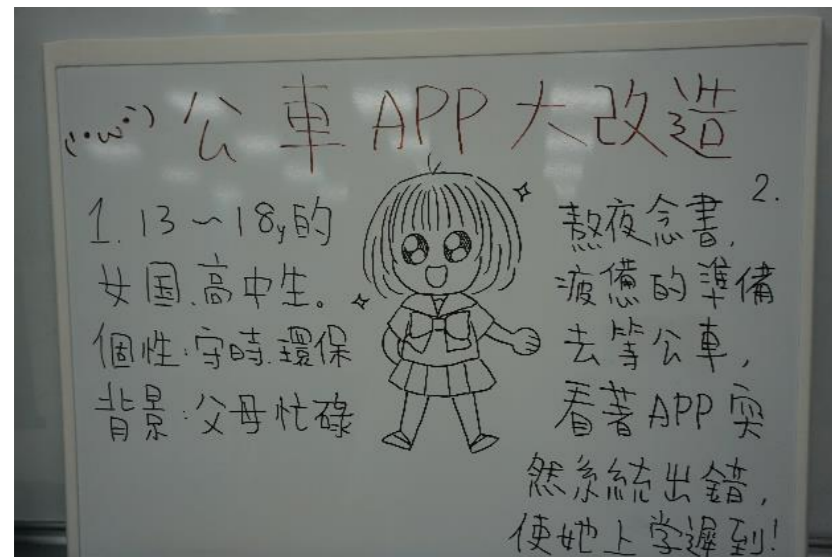 (･ω･) 公車APP大改造
1. 13~18y的
女国、高中生。
個性:守時.環保
背景:父母忙碌
2.
熬夜念書,
疲憊的準備
去等公車,
看著APP突
然系統出錯,
使她上学遲到!